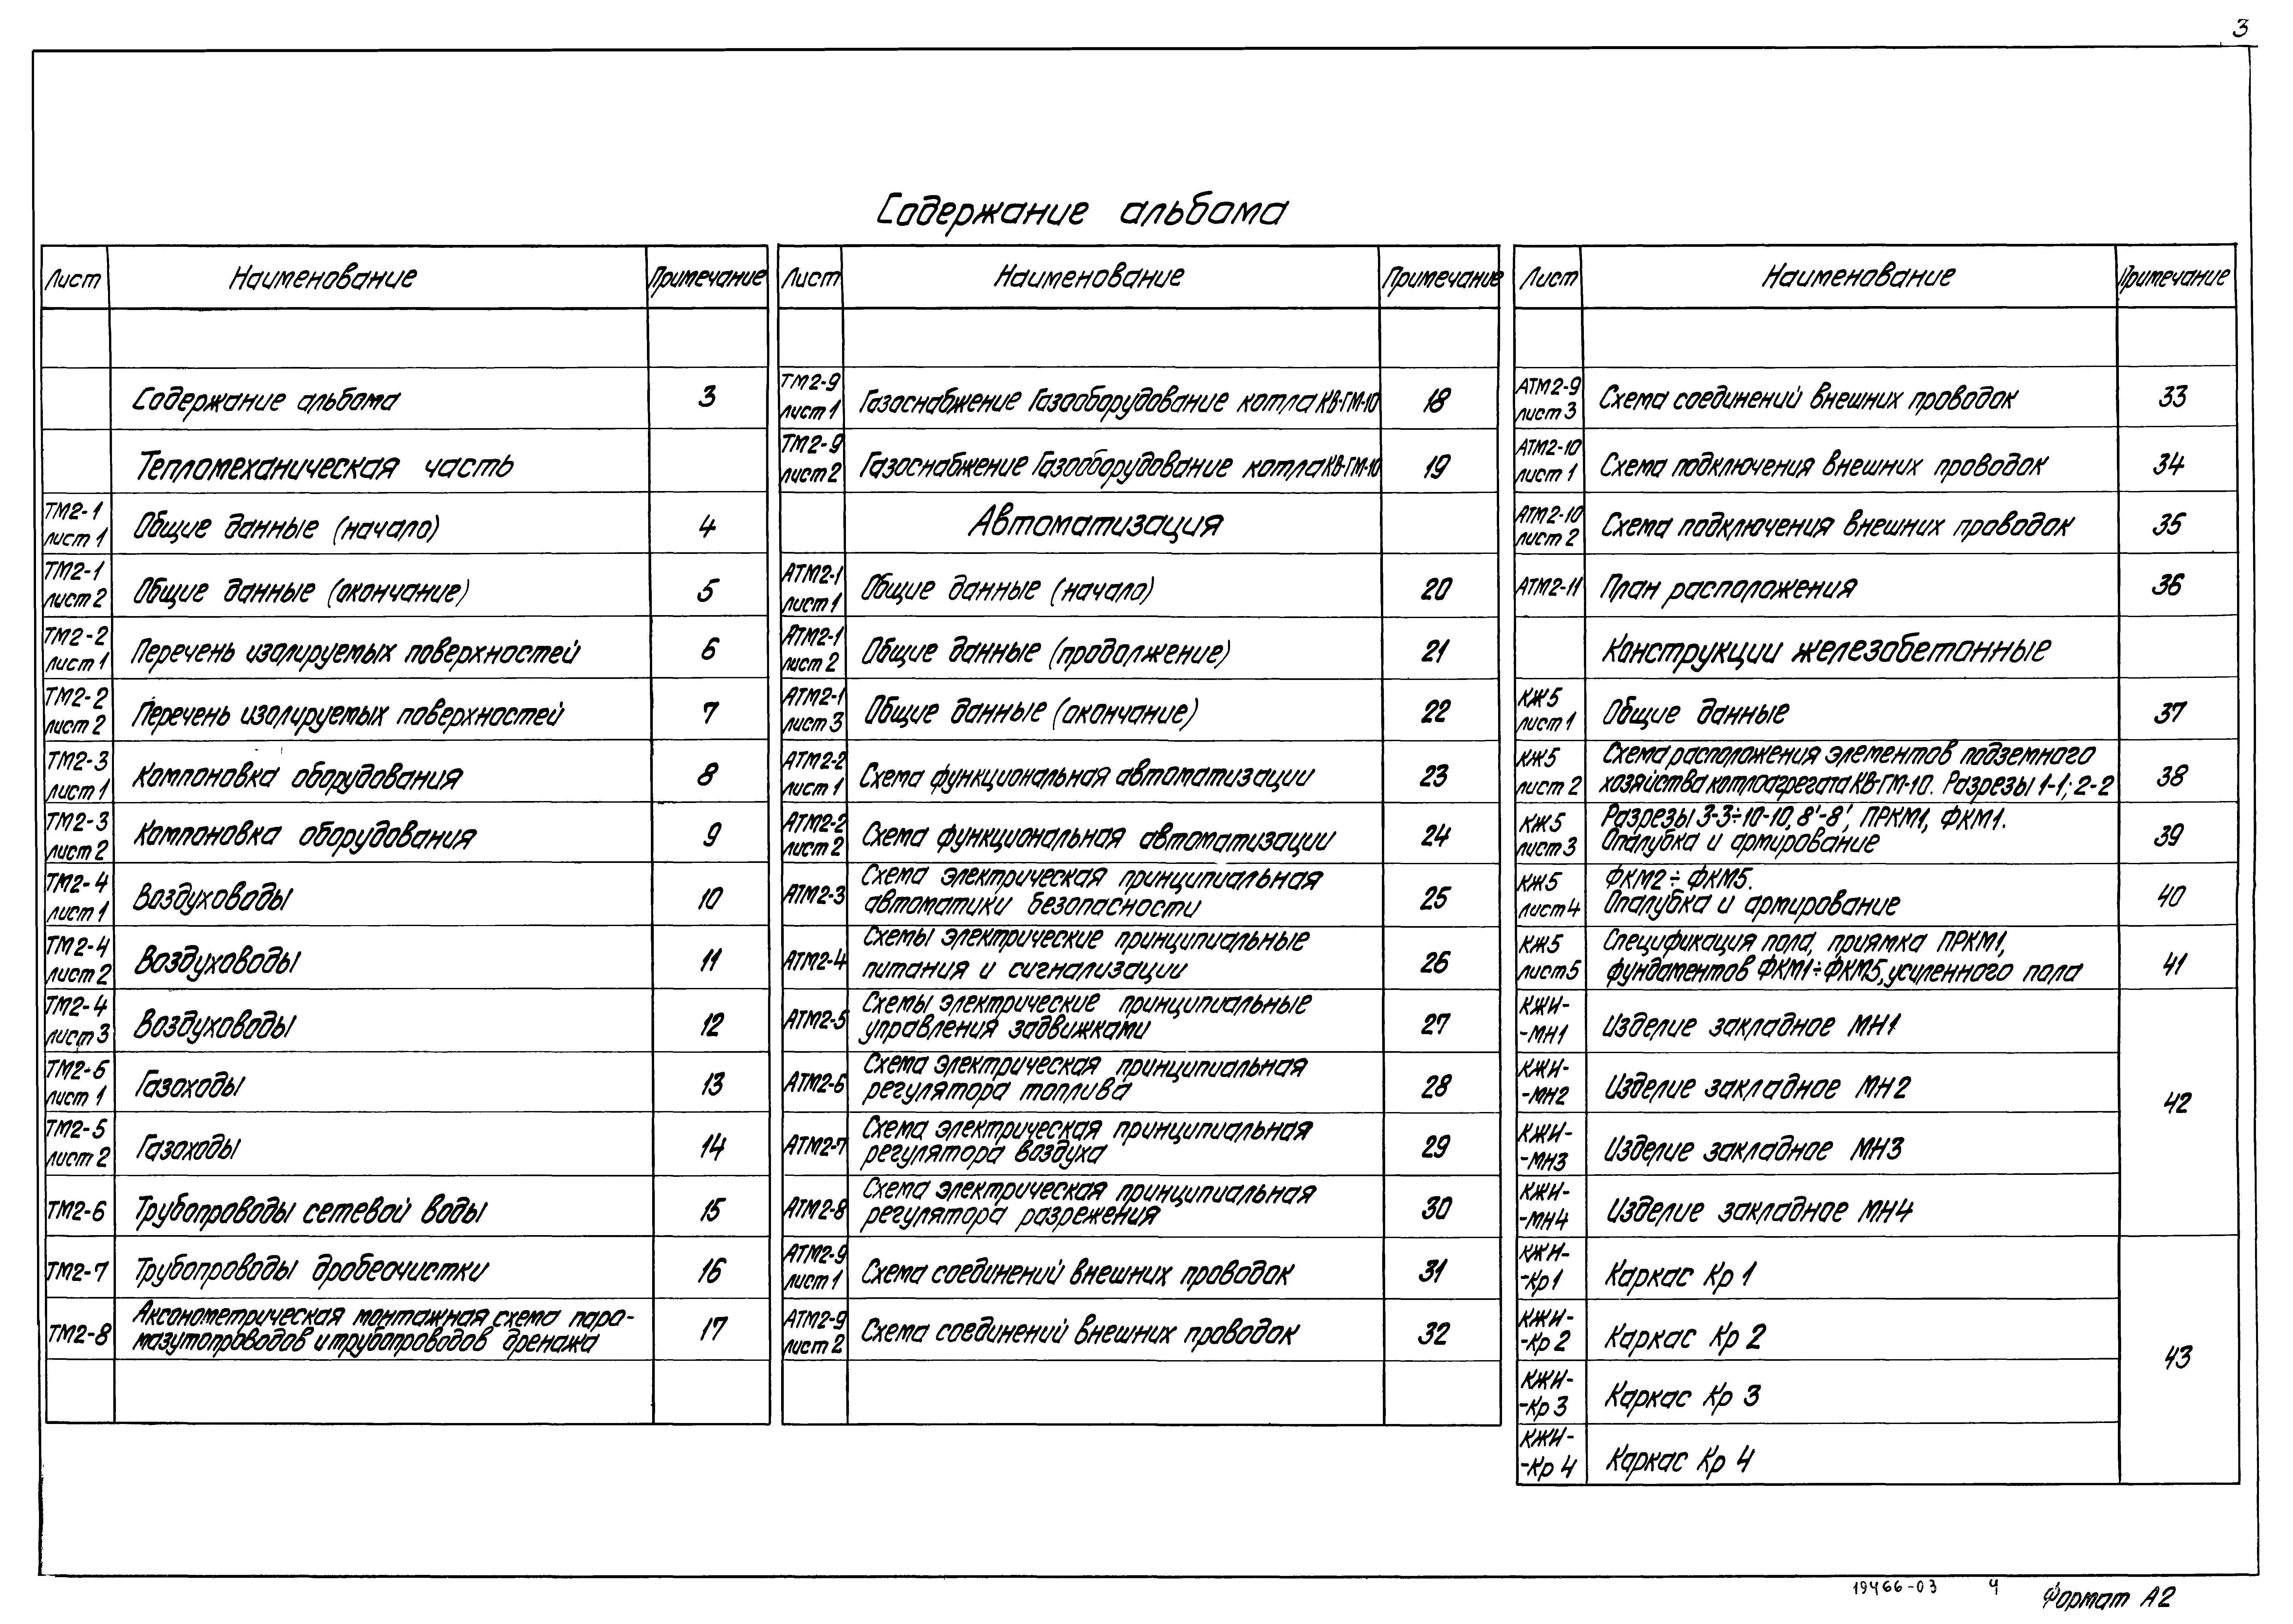 3
Содержание альбома
Лист Наименование Примечание
Содержание альбома 3
Тепломеханическая часть
ТМ2-1 лист 1 Общие данные (начало) 4
ТМ2-1 лист 2 Общие данные (окончание) 5
ТМ2-2 лист 1 Перечень изолируемых поверхностей 6
ТМ2-2 лист 2 Перечень изолируемых поверхностей 7
ТМ2-3 лист 1 Компоновка оборудования 8
ТМ2-3 лист 2 Компоновка оборудования 9
ТМ2-4 лист 1 Воздуховоды 10
ТМ2-4 лист 2 Воздуховоды 11
ТМ2-4 лист 3 Воздуховоды 12
ТМ2-5 лист 1 Газоходы 13
ТМ2-5 лист 2 Газоходы 14
ТМ2-6 Трубопроводы сетевой воды 15
ТМ2-7 Трубопроводы дробеочистки 16
ТМ2-8 Аксонометрическая монтажная схема паро-
мазутопроводов и трубопроводов дренажа 17
Лист Наименование Примечание
ТМ2-9 лист 1 Газоснабжение Газооборудование котла КВ-ГМ-10 18
ТМ2-9 лист 2 Газоснабжение Газооборудование котла КВ-ГМ-10 19
Автоматизация
АТМ2-1 лист 1 Общие данные (начало) 20
АТМ2-1 лист 2 Общие данные (продолжение) 21
АТМ2-1 лист 3 Общие данные (окончание) 22
АТМ2-2 лист 1 Схема функциональная автоматизации 23
АТМ2-2 лист 2 Схема функциональная автоматизации 24
АТМ2-3 Схема электрическая принципиальная
автоматики безопасности 25
АТМ2-4 Схемы электрические принципиальные
питания и сигнализации 26
АТМ2-5 Схемы электрические принципиальные
управления задвижками 27
АТМ2-6 Схема электрическая принципиальная
регулятора топлива 28
АТМ2-7 Схема электрическая принципиальная
регулятора воздуха 29
АТМ2-8 Схема электрическая принципиальная
регулятора разрежения 30
АТМ2-9 лист 1 Схема соединений внешних проводок 31
АТМ2-9 лист 2 Схема соединений внешних проводок 32
Лист Наименование Примечание
АТМ2-9 лист 3 Схема соединений внешних проводок 33
АТМ2-10 лист 1 Схема подключения внешних проводок 34
АТМ2-10 лист 2 Схема подключения внешних проводок 35
АТМ2-11 План расположения 36
Конструкции железобетонные
КЖ5 лист 1 Общие данные 37
КЖ5 лист 2 Схема расположения элементов подземного
хозяйства котлоагрегата КВ-ГМ-10. Разрезы 1-1; 2-2 38
КЖ5 лист 3 Разрезы 3-3÷10-10, 8'-8', ПРКМ1, ФКМ1.
Опалубка и армирование 39
КЖ5 лист 4 ФКМ2÷ФКМ5.
Опалубка и армирование 40
КЖ5 лист 5 Спецификация пола, приямка ПРКМ1,
фундаментов ФКМ1÷ФКМ5, усиленного пола 41
КЖИ-
-МН1 Изделие закладное МН1
КЖИ-
-МН2 Изделие закладное МН2
42
КЖИ-
-МН3 Изделие закладное МН3
КЖИ-
-МН4 Изделие закладное МН4
КЖИ-
-Кр1 Каркас Кр 1
КЖИ-
-Кр 2 Каркас Кр 2
43
КЖИ-
-Кр 3 Каркас Кр 3
КЖИ-
-Кр 4 Каркас Кр 4
19466-03 4 Формат А2